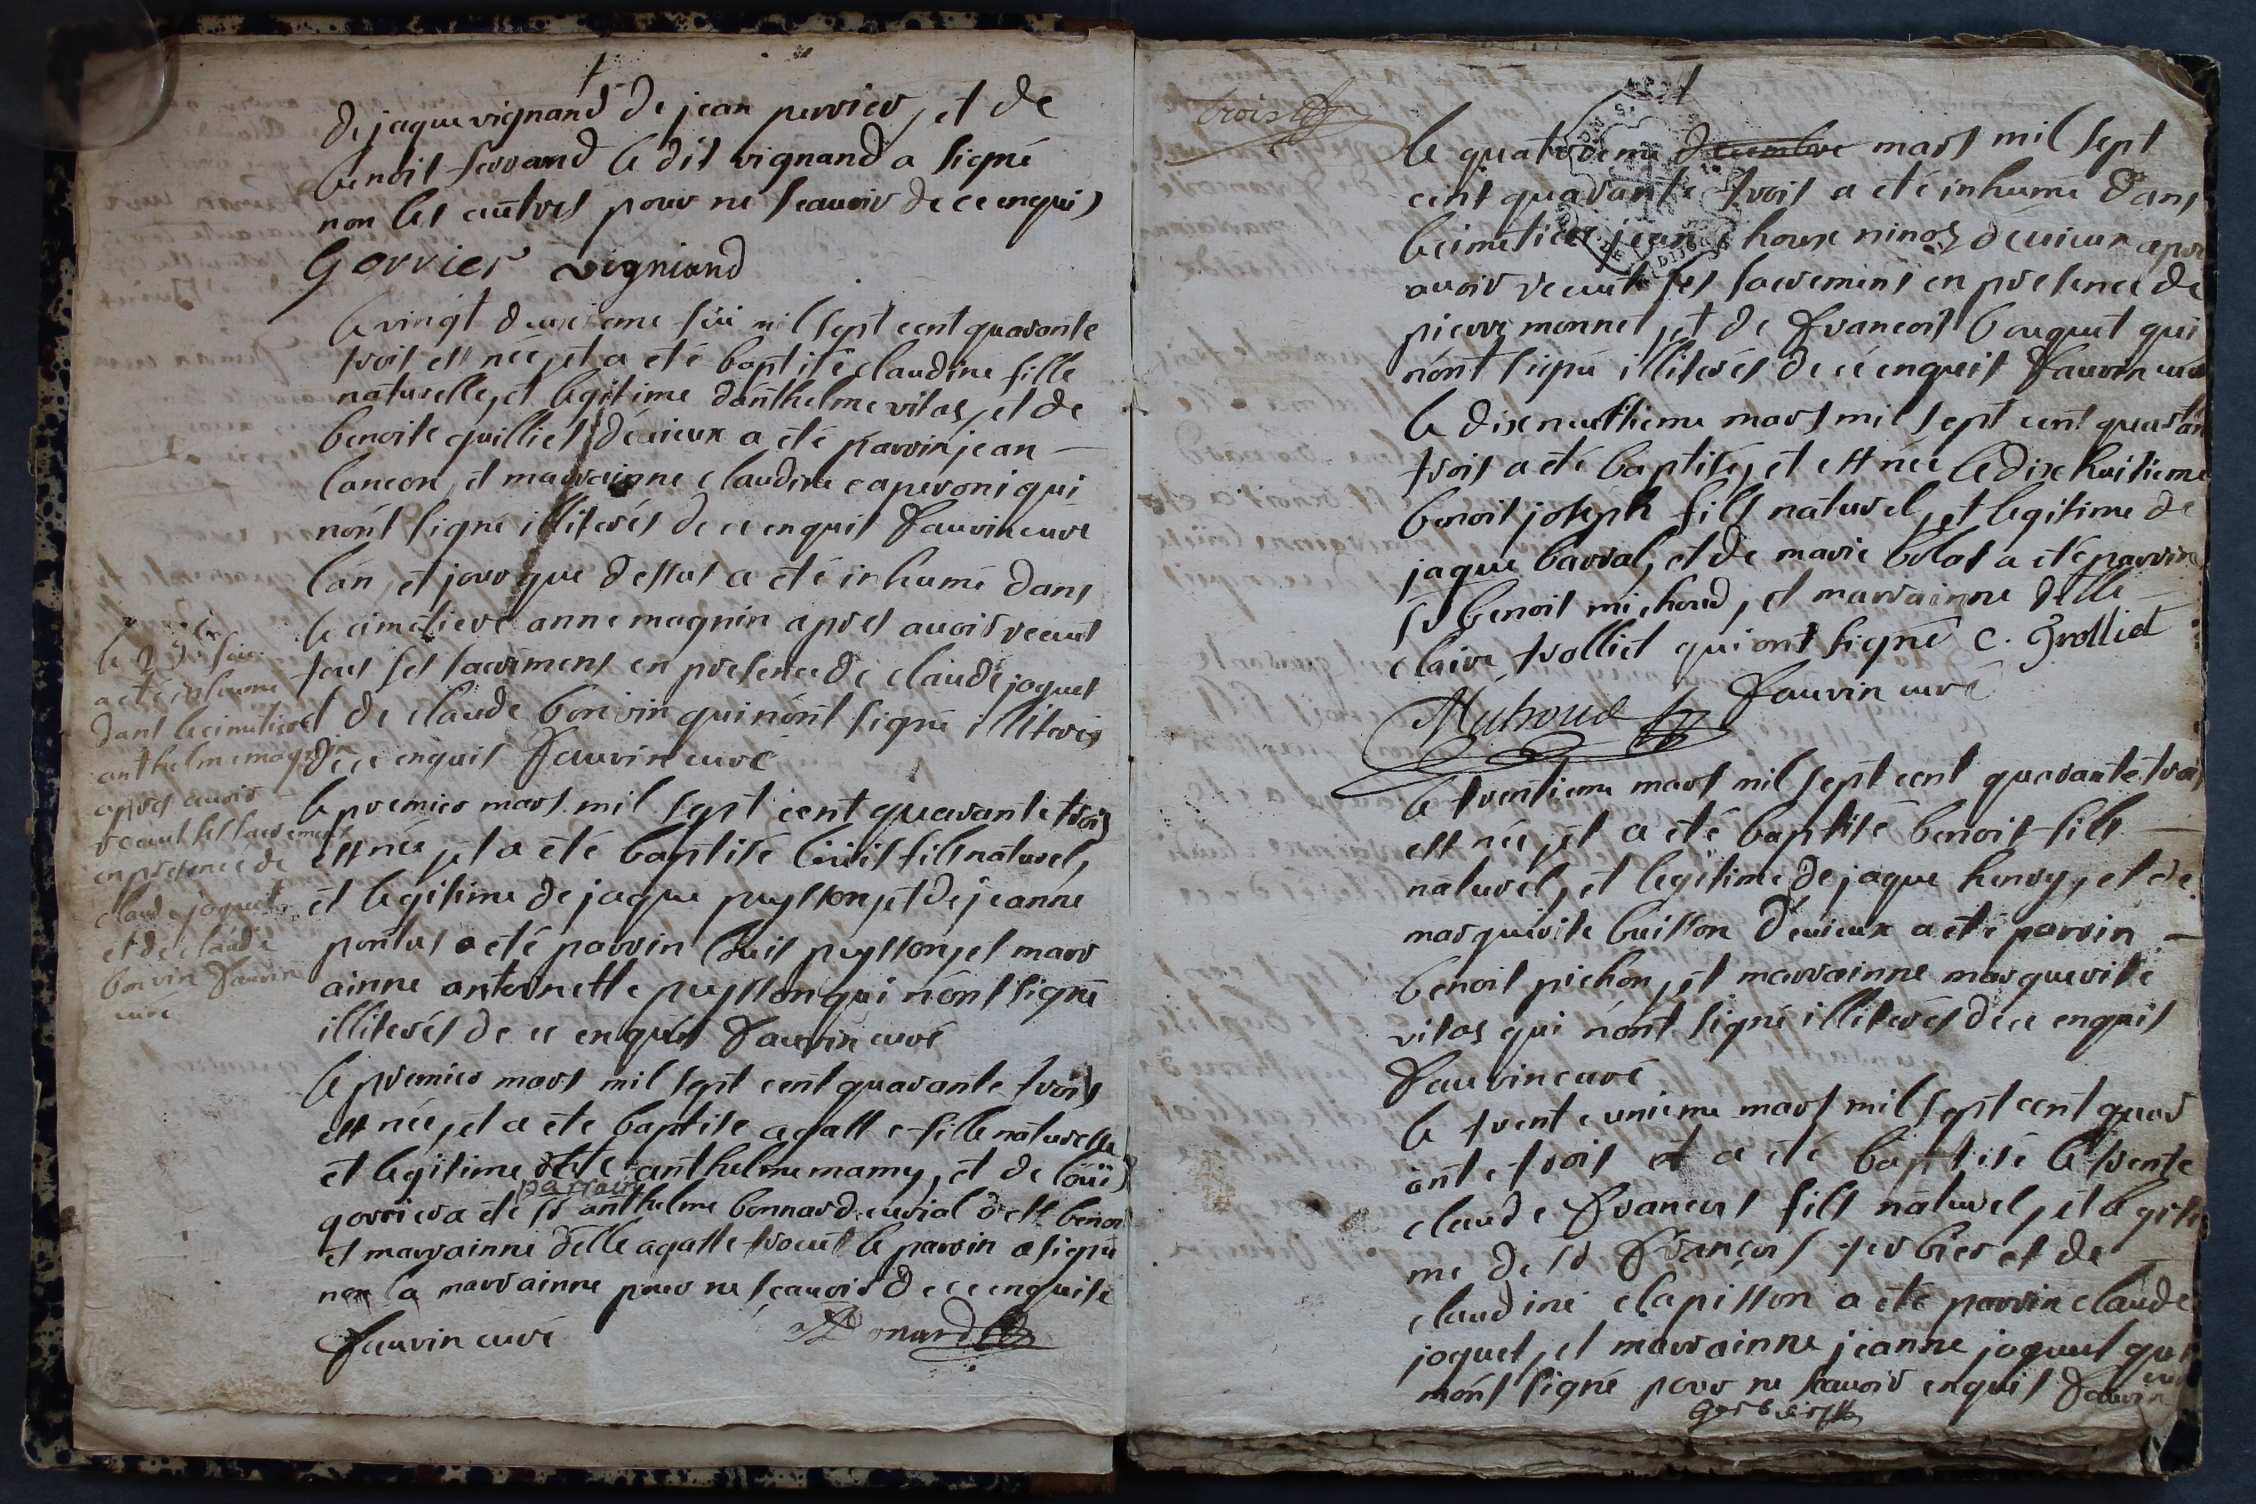 de jaque vignand de jean perrier, et de
benoit ferrand le dit vignand a signé
non les autres pour ne scauoir de ce enquis
Gorrier vigniand
le vingt deuxieme mil sept cent quarante
trois est née, et a eté baptisé claudine fille
naturelle, et legitime d'anthelme vitas, et de
benoite quilliet d'euieux a eté parrin jean
lancon, et marrainne claudine caperoni qui
n'ont signé illiterés de ce enquis fauvin curé
l'an, et jour que dessus a eté inhumé dans
le cimetiere anne magnin apres auoir receut
tous ses sacremens en presence de claude joquet
et de claude bonvin qui n'ont signé illiterés
de ce enquis fauvin curé
le
a eté inhumé
dans le cimetiere
anthelme magnin
apres auoir
receut ses sacremens
en presence de
claude joquet
et de claude
bonvin fauvin
curé
le premier mars mil sept cent quarante trois
est née, et a eté baptisé loüis fils naturel,
et legitime de jaque puysson, et de jeanne
pontus a eté parrin loüis puysson, et marr
ainne antoinette puysson qui n'ont signé
illiterés de ce enquis fauvin curé
le premier mars mil sept cent quarante trois
est née, et a eté baptisé agatte fille naturelle
et legitime de anthelme mamy, et de loüis
parrain
gorrier a eté sr anthelme bonnard curial de st benoi
et marrainne delle agatte trocut le parrin a signé
non la marrainne pour ne scauoir de ce enquise
fauvin curé
trois
le quatorzieme decembre mars mil sept
cent quarante trois a eté inhumé dans
le cimetiere jean d'euieux apres
auoir receut ses sacremens en presence de
pierre monnet, et de francois bouquet qui
n'ont signé illiterés de ce enquis fauvin curé
le dixneuftieme mars mil sept cent quaran
trois a eté baptisé, et est née le dixhuitieme
benoit joseph fils naturel, et legitime de
jaque barral, et de marie bolas a eté parrin
sr benoit michoud, et marrainne delle
claire trolliet qui ont signé C. Trolliet
Michoud fauvin curé
le trentieme mars mil sept cent quarante trois
est née, et a eté baptisé benoit fils
naturel, et legitime de jaque henry, et de
marguerite buisson d'euieux a eté parrin
benoit pichon, et marrainne marguerite
vitas qui n'ont signé illiterés de ce enquis
fauvin curé
le trente unieme mars mil sept cent quar
ante trois et a eté baptisé le trente
claude francois fils naturel, et legiti
me de sr françois gerbier et de
claudine clapisson a eté parrin claude
joquet, et marrainne jeanne joquet qui
n'ont signé pour ne scauoir enquis fauvin
curé